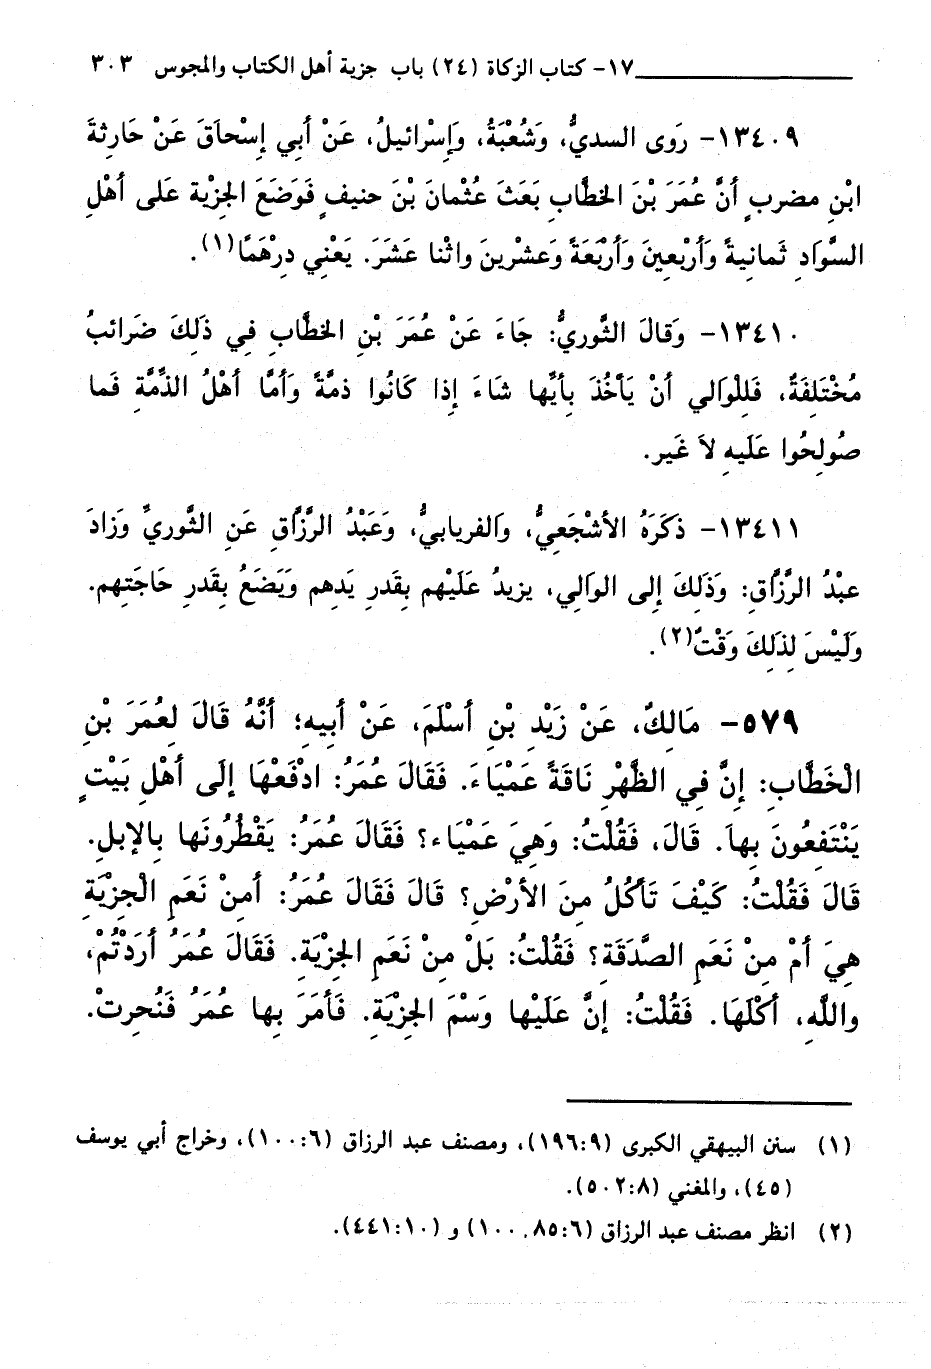 ١٧- كتاب الزكاة (٢٤) باب جزية أهل الكتاب والمجوس ٣٠٣
١٣٤٠٩- رَوى السديُّ، وَشُعْبَةُ، وَإِسْرائيلُ، عَنْ أَبي إِسْحاقَ عَنْ حَارِثةَ
ابْنِ مضربٍ أنَّ عُمَرَ بْنَ الخطَّابِ بَعَثَ عثْمانَ بْنَ حنيفٍ فَوَضَعَ الجزْية عَلى أَهْلِ
السَّوَادِ ثَمانِيةً وَأَرْبعِينَ وَأَرْبَعَةً وَعشْرينَ واثْنا عَشَرَ. يَعْنِي دِرْهَمًا(١).
١٣٤١٠- وَقالَ الثَّوريُّ: جَاءَ عَنْ عُمَرَ بْنِ الخطَّابِ فِي ذَلِكَ ضَرائبُ
مُخْتَلِفَةٌ، فَلِلْوَالي أنْ يَأْخُذَ بِأيِّها شاءَ إِذا كَانُوا ذمَّةً وَأمَّا أهْلُ الذمَّةِ فَما
صُولِحُوا عَلَيهِ لاَ غَير.
١٣٤١١- ذكَرَهُ الأشْجَعِيُّ، وَالفريابيُّ، وَعَبْدُ الرَّزَّاقِ عَنِ الثَّوريِّ وَزادَ
عبْدُ الرَّزَّاقِ: وَذَلِكَ إلى الوَالِي، يزيدُ عَلَيْهم بِقَدرِ يَدهِم وَيَضَعُ بِقَدرِ حَاجَتِهم.
وَلَيْسَ لِذَلِكَ وَقْتٌ(٢).
٥٧٩- مَالِكٌ، عَنْ زَيْدِ بْنِ أَسْلَمَ، عَنْ أَبِيهِ؛ أنَّهُ قَالَ لِعُمَرَ بْنِ
الْخَطَّابِ: إِنَّ فِي الظَّهْرِ نَاقَةً عَمْيَاءَ. فَقَالَ عُمَرُ: ادْفَعْهَا إِلَى أَهْلِ بَيْتٍ
يَنْتَفِعُونَ بِهاَ. قَالَ، فَقُلْتُ: وَهِيَ عَمْيَاء؟ فَقَالَ عُمَرُ: يَقْطُرُونَها بِالإبلِ.
قَالَ فَقُلْتُ: كَيْفَ تَأكُلُ مِنَ الأرْضِ؟ قَالَ فَقَالَ عُمَرُ: أمنْ نَعَمِ الْجِزْيَةِ
هِيَ أمْ مِنْ نَعَمِ الصَّدَقَةِ؟ فَقُلْتُ: بَلْ مِنْ نَعَمِ الجِزْيَةِ. فَقَالَ عُمَرُ أرَدْتُمْ،
واللَّهِ، أكْلَهَا. فَقُلْتُ: إنَّ عَلَيْها وَسْمَ الجِزْيَةِ. فَأمَرَ بِها عُمَرُ فَنُحِرتْ.
(١) سنن البيهقي الكبرى (١٩٦:٩)، ومصنف عبد الرزاق (١٠٠:٦)، وخراج أبي يوسف
(٤٥)، والمغني (٥٠٢:٨).
(٢) انظر مصنف عبد الرزاق (٨٥:٦, ١٠٠) و (٤٤١:١٠).